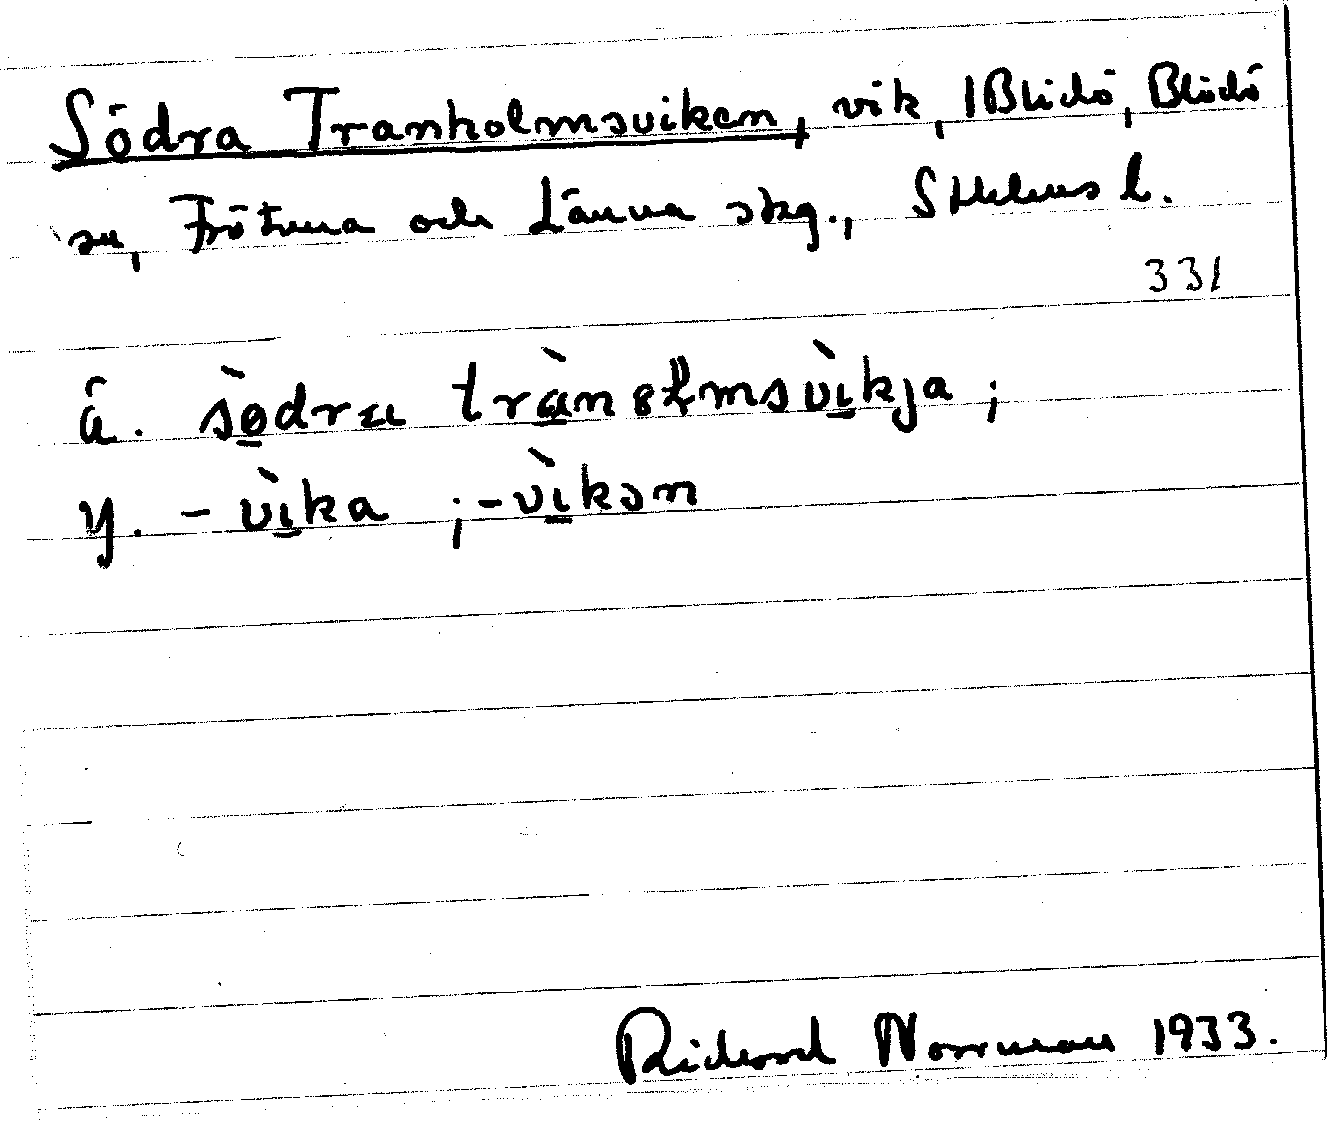 Södra Tranholmsviken, vik, 1 Blidö, Blidö
sn, Frötuna och Länna skg., Sthlms l.
331
ä. sø̀dra trànolmsvìkja ;
y. - vìka ; - vìkən
Rickard Norrman 1933.